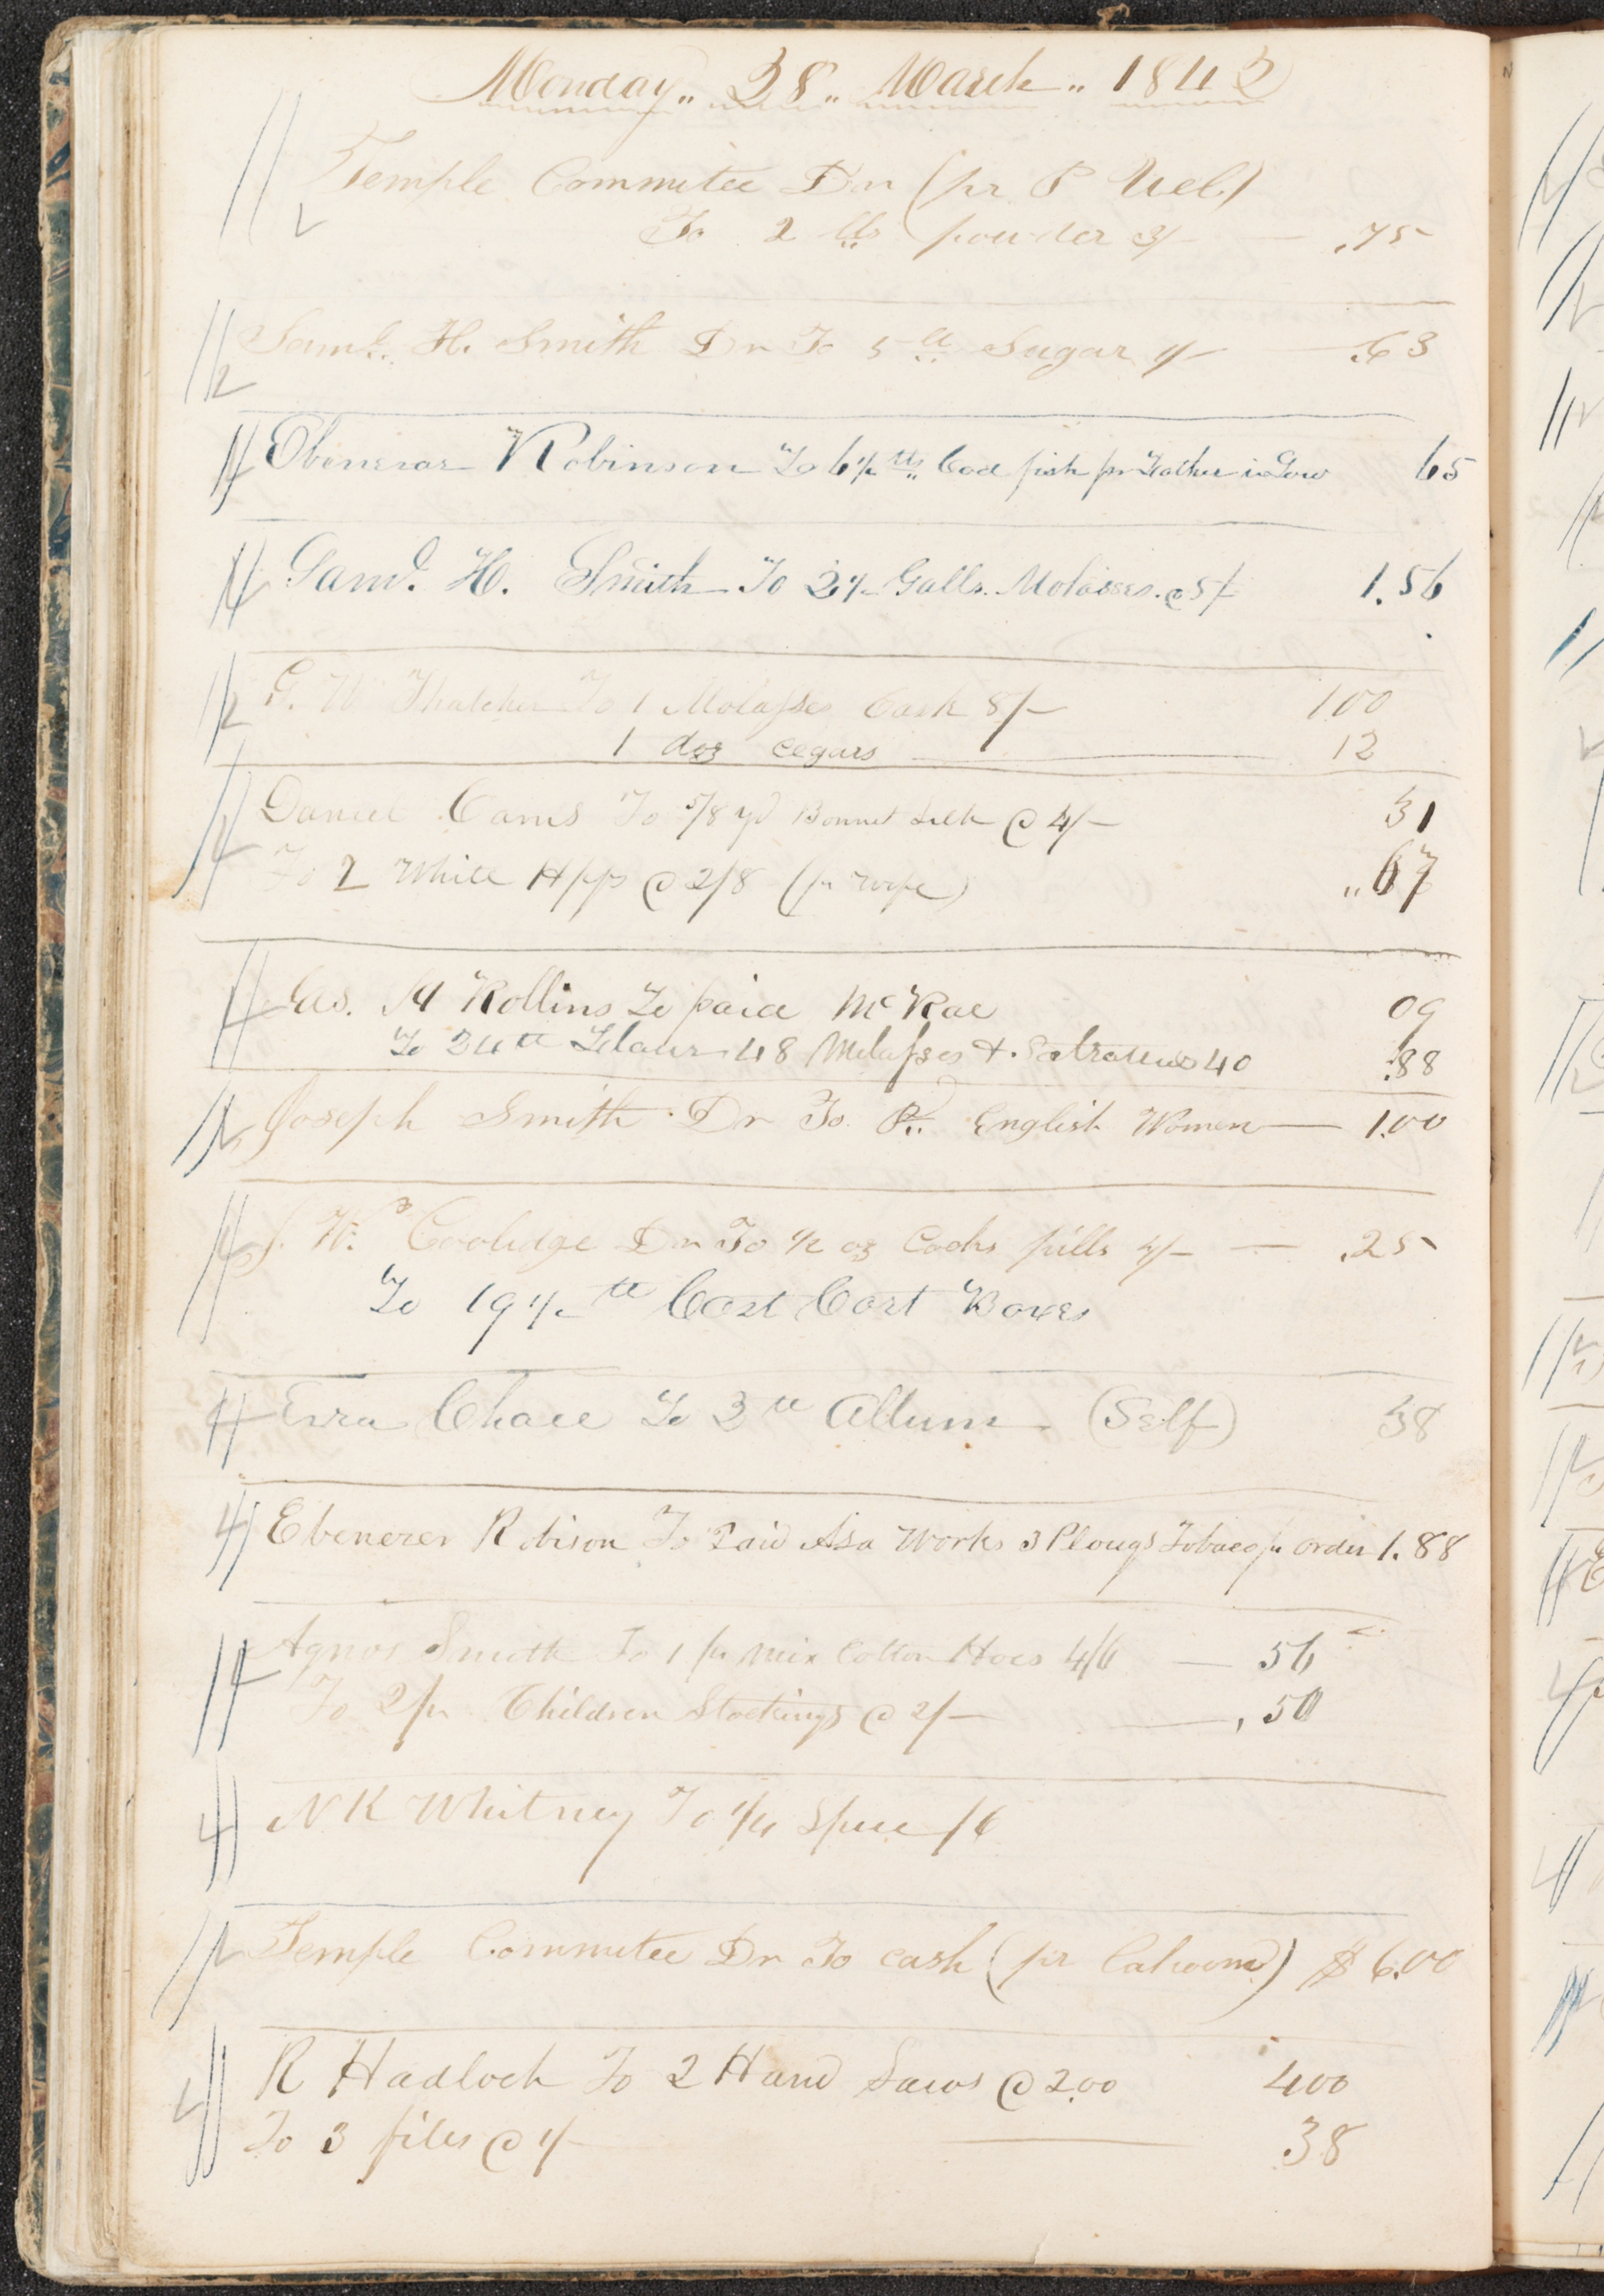 Monday„ 28„ March„ 1842
Temple Commitee Dr (pr P Uel.)
To 2 lb powder 3/- — .75
Saml. H. Smith Dr To 5 lb Sugar 1/- — .63
Ebenezar Robinson To 6½ lb Cod fish pr 65
Saml. H. Smith To 2½ Galls. Molasses. @ 5/- 1.56
G. W Thatcher To 1 Molasses Cask 8/- 100
1 doz cegars — 12
Daniel Carns To 5/8 yd Bonnet Silk @ 4/- 31
To 2 White Hkfs @ 2/8 (pr wife) „ 67
Jas. H Rollins To paid McRae 09
To 24 lb Flour 48 Molasses & Salratus 40 .88
Joseph Smith Dr To Pd. English Women — 1.00
J. W. Coolidge Dr To ½ oz Cooks pills 4/- — .25
To 19½ lb Cast Cart Boxes
Ezra Chace To 3 lb Allum (Self) 38
Ebenezer Robison To Paid Asa Works 3 Plougs Tobaco pr order 1.88
Agnes Smith To 1 pr mix Cotton Hoes 4/6 — 56
To 2 pr Children Stockings @ 2/- — , 50
N K Whitney To ¼ Spice /6
Temple Commitee Dr To cash (pr Cahoone) $ 6.00
R Hadlock To 2 Hand Saws @ 2.00 400
To 3 files @ 1/- — 38